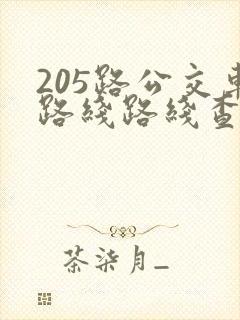 205路公交车
路线路线查
茶柒月_